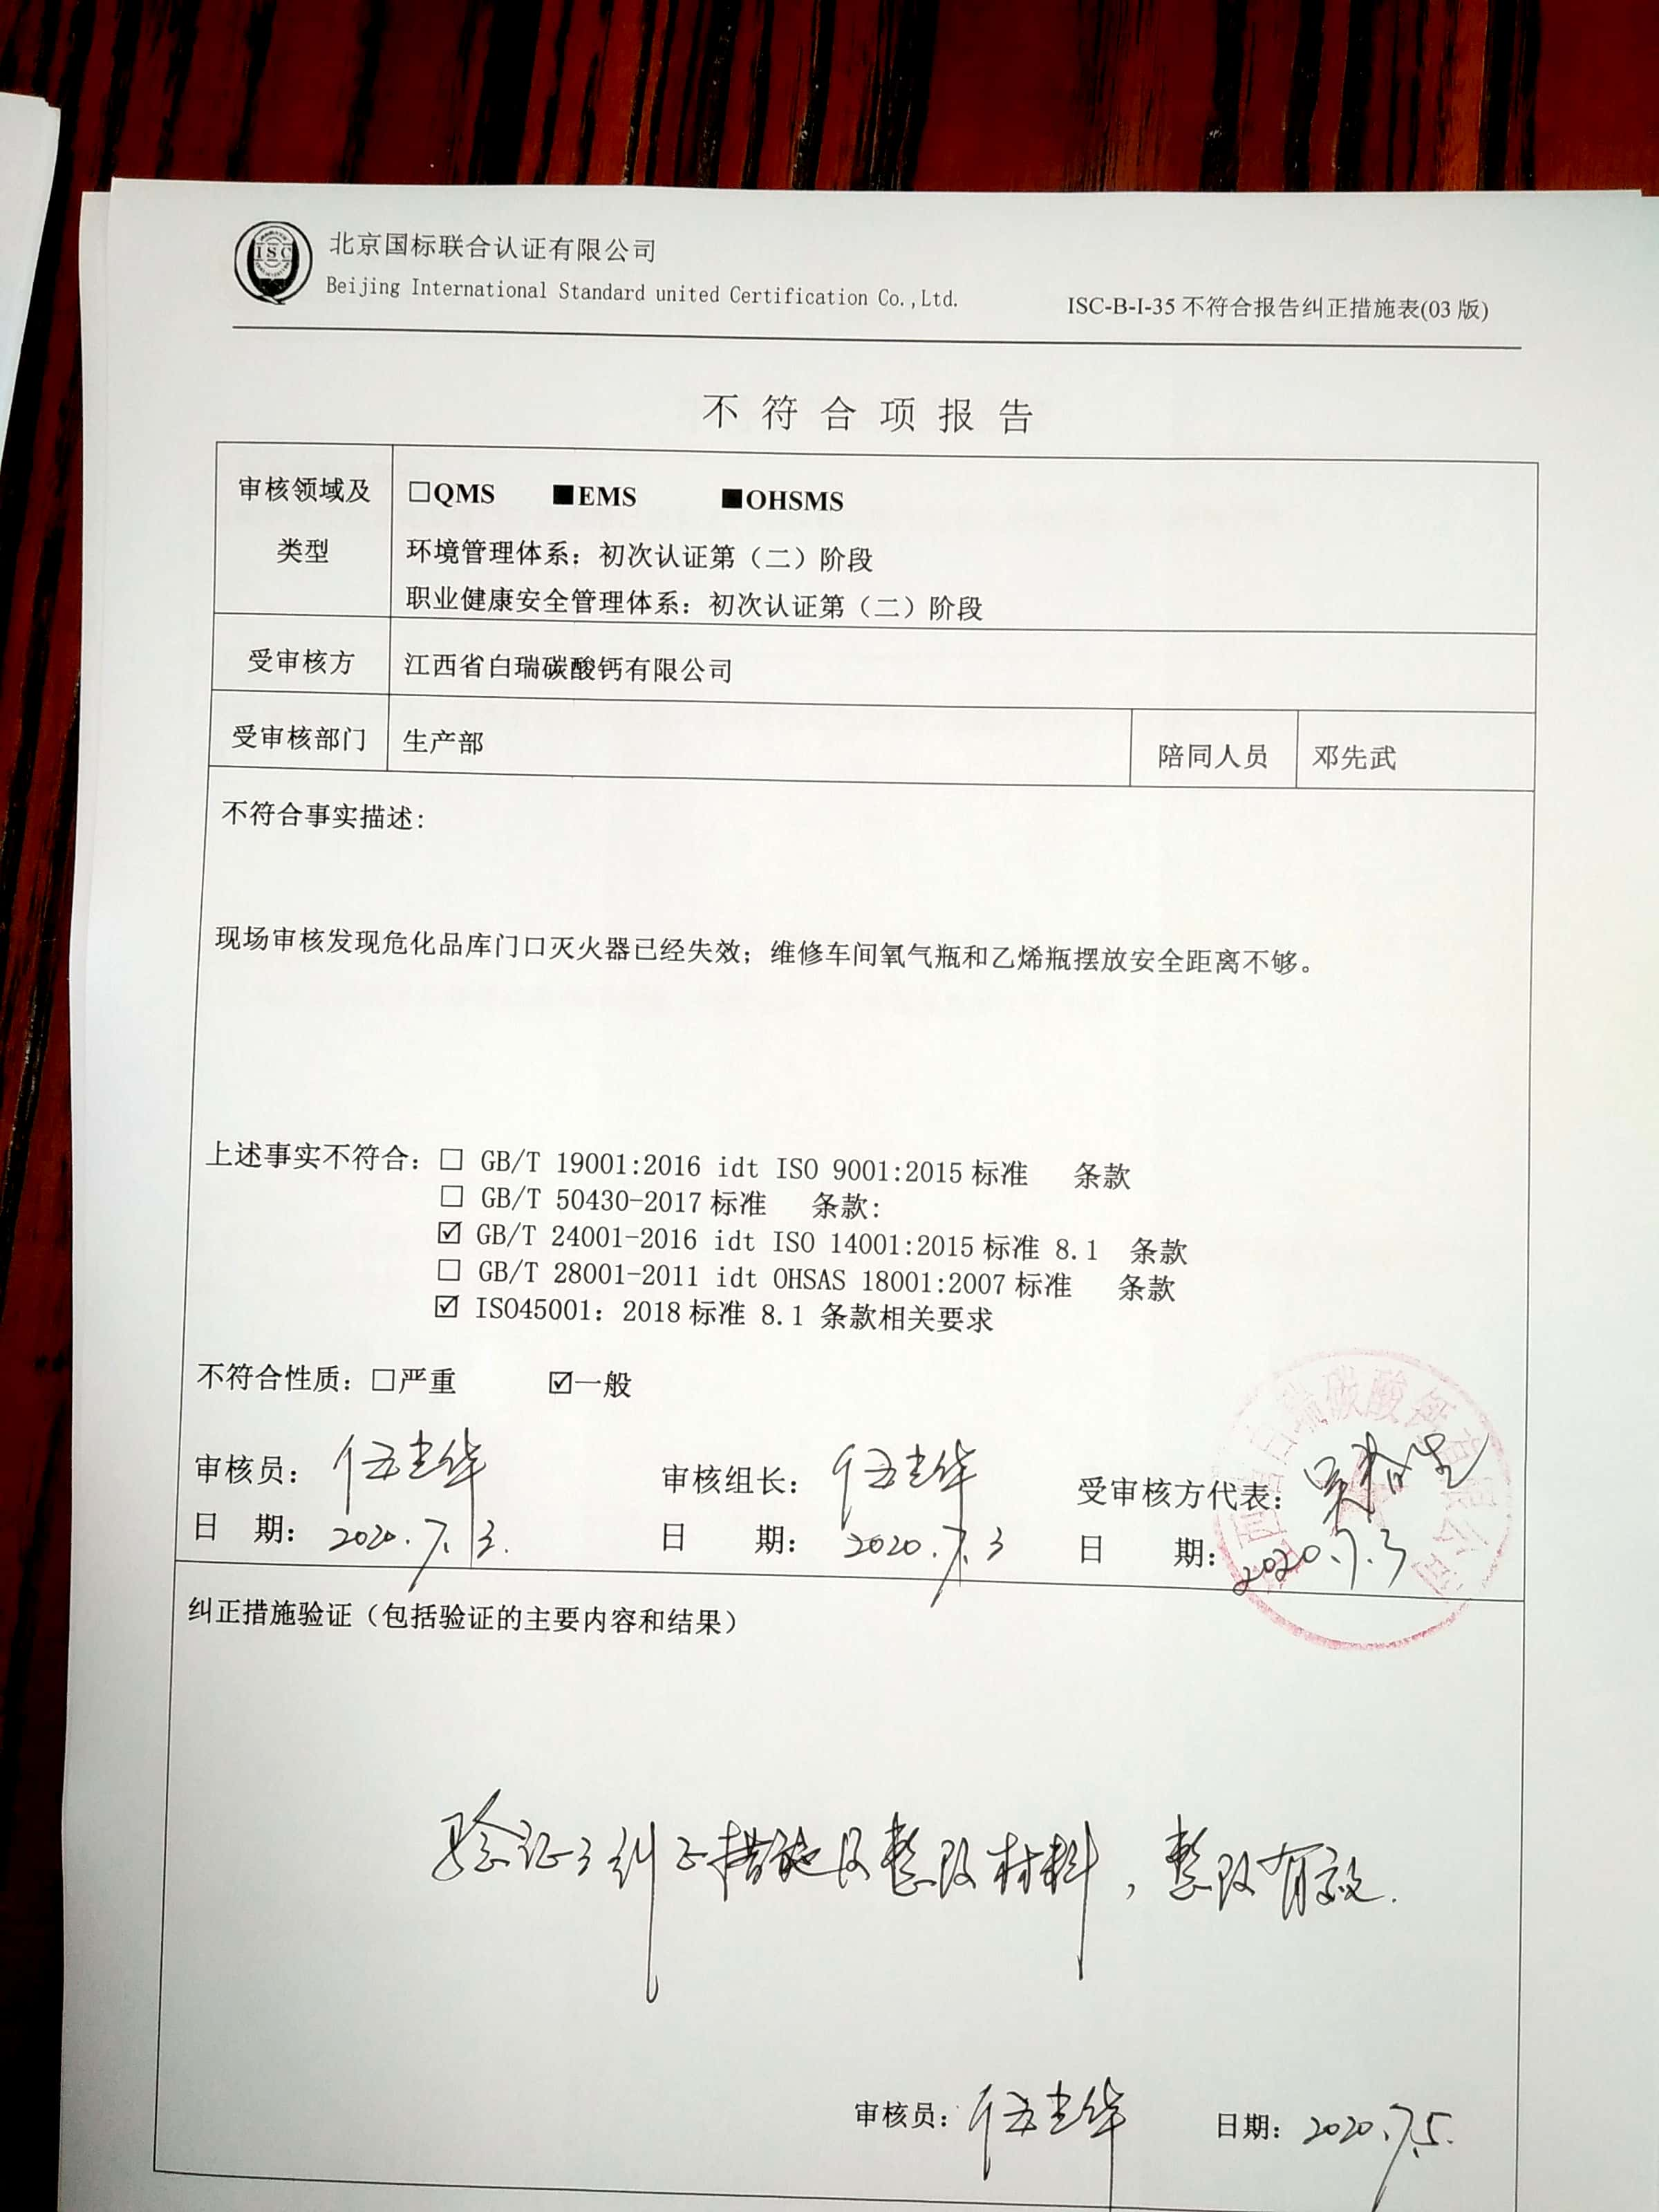 ISC
北京国标联合认证有限公司
Beijing International Standard united Certification Co.,Ltd.
ISC-B-I-35 不符合报告纠正措施表(03 版)
不符合项报告
审核领域及类型
□QMS ■EMS ■OHSMS
环境管理体系：初次认证第（二）阶段
职业健康安全管理体系：初次认证第（二）阶段
受审核方 江西省白瑞碳酸钙有限公司
受审核部门 生产部 陪同人员 邓先武
不符合事实描述：
现场审核发现危化品库门口灭火器已经失效；维修车间氧气瓶和乙烯瓶摆放安全距离不够。
上述事实不符合：□ GB/T 19001:2016 idt ISO 9001:2015 标准 条款
□ GB/T 50430-2017 标准 条款：
☑ GB/T 24001-2016 idt ISO 14001:2015 标准 8.1 条款
□ GB/T 28001-2011 idt OHSAS 18001:2007 标准 条款
☑ ISO45001：2018 标准 8.1 条款相关要求
不符合性质：□严重 ☑一般
审核员： 审核组长： 受审核方代表：
日 期：2020.7.3. 日 期：2020.7.3 日 期：2020.7.3
纠正措施验证（包括验证的主要内容和结果）
验证了纠正措施及整改材料，整改有效.
审核员： 日期：2020.7.5.